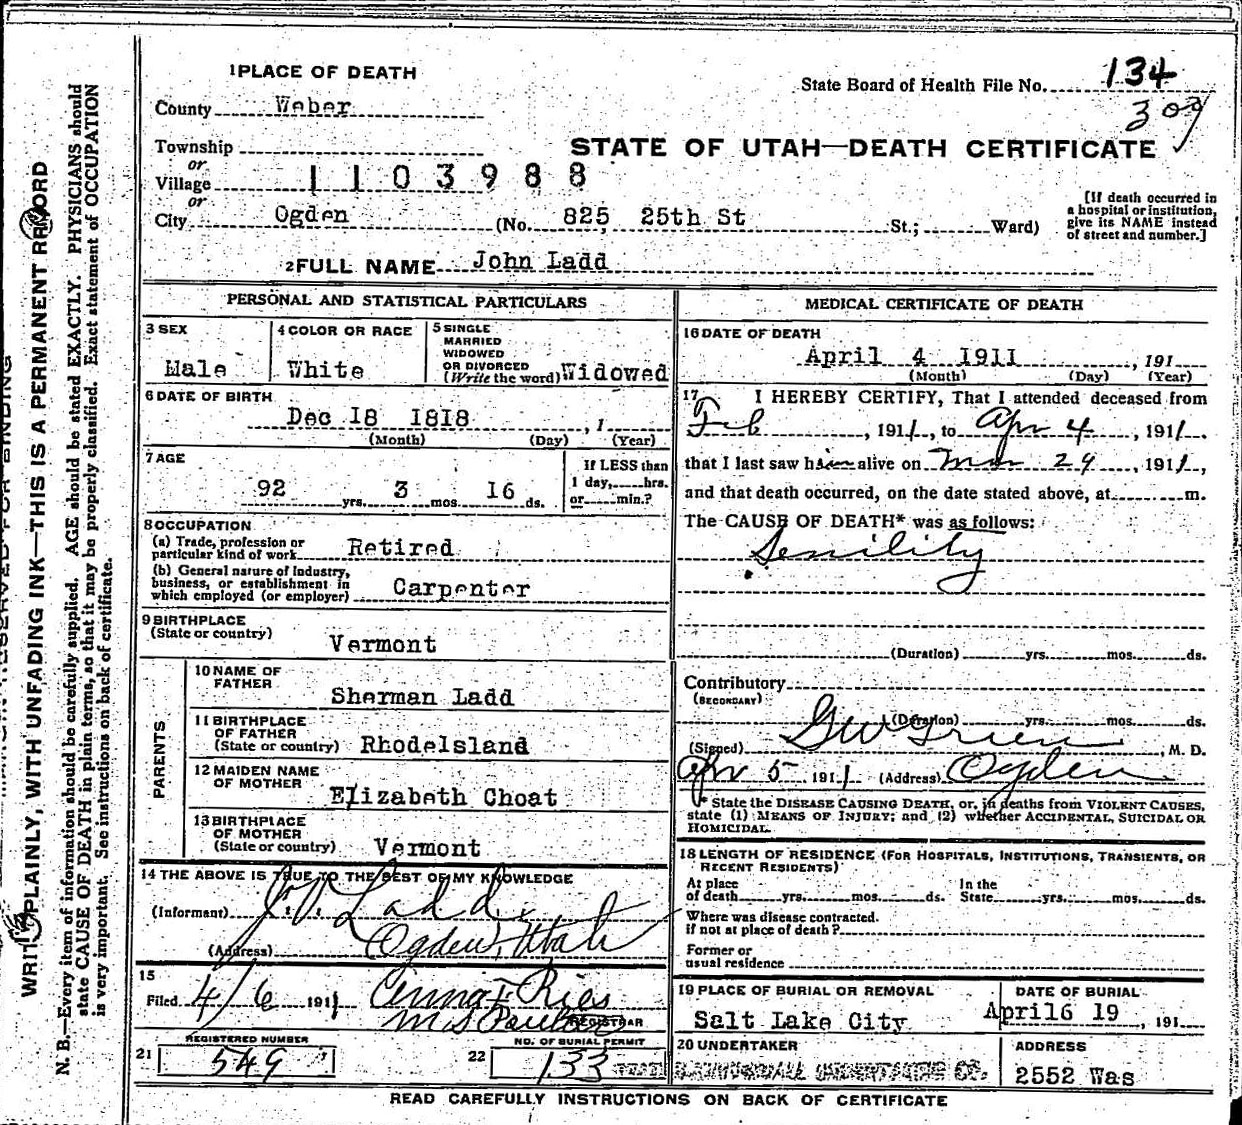 1 PLACE OF DEATH
State Board of Health File No. 134
County Weber
309
Township
STATE OF UTAH—DEATH CERTIFICATE
or
Village 1 1 0 3 9 8 8
or
City Ogden (No. 825 25th St St.; Ward)
[If death occurred in
a hospital or institution,
give its NAME instead
of street and number.]
2 FULL NAME John Ladd
PERSONAL AND STATISTICAL PARTICULARS
3 SEX
Male
4 COLOR OR RACE
White
5 SINGLE
MARRIED
WIDOWED
OR DIVORCED
(Write the word) Widowed
6 DATE OF BIRTH
Dec 18 1818 , 1
(Month) (Day) (Year)
7 AGE
92 yrs. 3 mos. 16 ds.
If LESS than
1 day, hrs.
or min.?
8 OCCUPATION
(a) Trade, profession or
particular kind of work Retired
(b) General nature of Industry,
business, or establishment in
which employed (or employer) Carpenter
9 BIRTHPLACE
(State or country)
Vermont
PARENTS
10 NAME OF
FATHER
Sherman Ladd
11 BIRTHPLACE
OF FATHER
(State or country) RhodeIsland
12 MAIDEN NAME
OF MOTHER
Elizabeth Choat
13 BIRTHPLACE
OF MOTHER
(State or country) Vermont
14 THE ABOVE IS TRUE TO THE BEST OF MY KNOWLEDGE
(Informant) Ladd
(Address) Ogden, Utah
15
Filed 4/6 1911
REGISTRAR
REGISTERED NUMBER
21 549
NO. OF BURIAL PERMIT
22 133
MEDICAL CERTIFICATE OF DEATH
16 DATE OF DEATH
April 4 1911 , 191
(Month) (Day) (Year)
17 I HEREBY CERTIFY, That I attended deceased from
Feb , 1911, to Apr 4 , 1911.
that I last saw him alive on Mar 29 , 1911,
and that death occurred, on the date stated above, at m.
The CAUSE OF DEATH* was as follows:
Senility
(Duration) yrs. mos. ds.
Contributory
(SECONDARY)
(Duration) yrs. mos. ds.
(Signed) G W Green , M. D.
Apr 5 1911 (Address) Ogden
* State the DISEASE CAUSING DEATH, or, in deaths from VIOLENT CAUSES,
state (1) MEANS OF INJURY; and (2) whether ACCIDENTAL, SUICIDAL OR
HOMICIDAL.
18 LENGTH OF RESIDENCE (FOR HOSPITALS, INSTITUTIONS, TRANSIENTS, OR
RECENT RESIDENTS)
At place
of death yrs. mos. ds.
In the
State yrs. mos. ds.
Where was disease contracted.
if not at place of death?
Former or
usual residence
19 PLACE OF BURIAL OR REMOVAL
Salt Lake City
DATE OF BURIAL
April6 19 , 191
20 UNDERTAKER
ADDRESS
2552 Was
READ CAREFULLY INSTRUCTIONS ON BACK OF CERTIFICATE
WRITE PLAINLY, WITH UNFADING INK—THIS IS A PERMANENT RECORD
N. B.—Every item of information should be carefully supplied. AGE should be stated EXACTLY. PHYSICIANS should
state CAUSE OF DEATH in plain terms, so that it may be properly classified. Exact statement of OCCUPATION
is very important. See instructions on back of certificate.